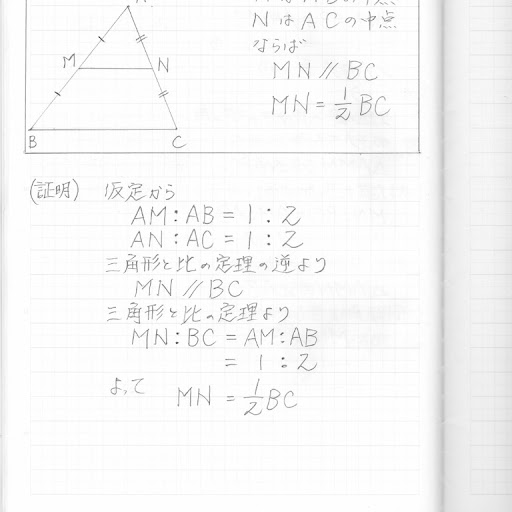 M
N
B
C
NはACの中点
ならば
MN // BC
MN = 1/2 BC
(証明) 仮定から
AM : AB = 1 : 2
AN : AC = 1 : 2
三角形と比の定理の逆より
MN // BC
三角形と比の定理より
MN : BC = AM : AB
= 1 : 2
よって MN = 1/2 BC